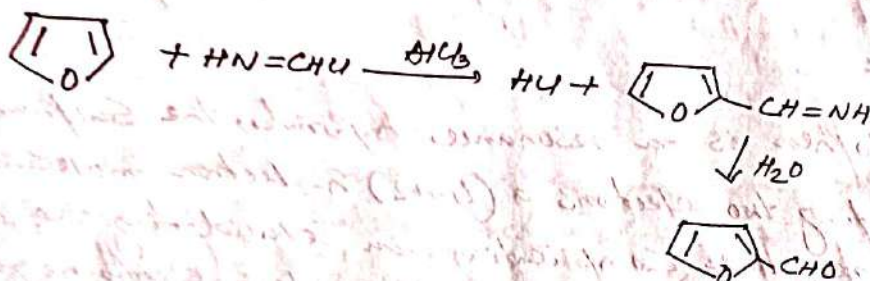 O + HN=CHCl AlCl3 HCl + O CH=NH
H2O
O CHO